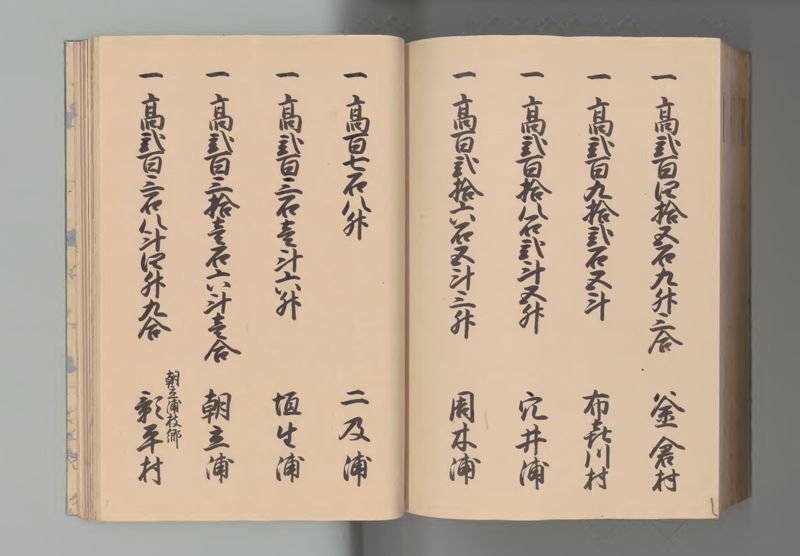 一 高弐百四拾五石九升三合 釜倉村
一 高弐百九拾弐石五斗 布喜川村
一 高弐百拾八石弐斗五升 穴井浦
一 高百弐拾六石五斗三升 周木浦
一 高百七石八升 二及浦
一 高弐百三石壱斗六升 垣生浦
一 高弐百三拾壱石六斗壱合 朝立浦
朝立浦枝郷
一 高弐百三石八斗四升九合 平村